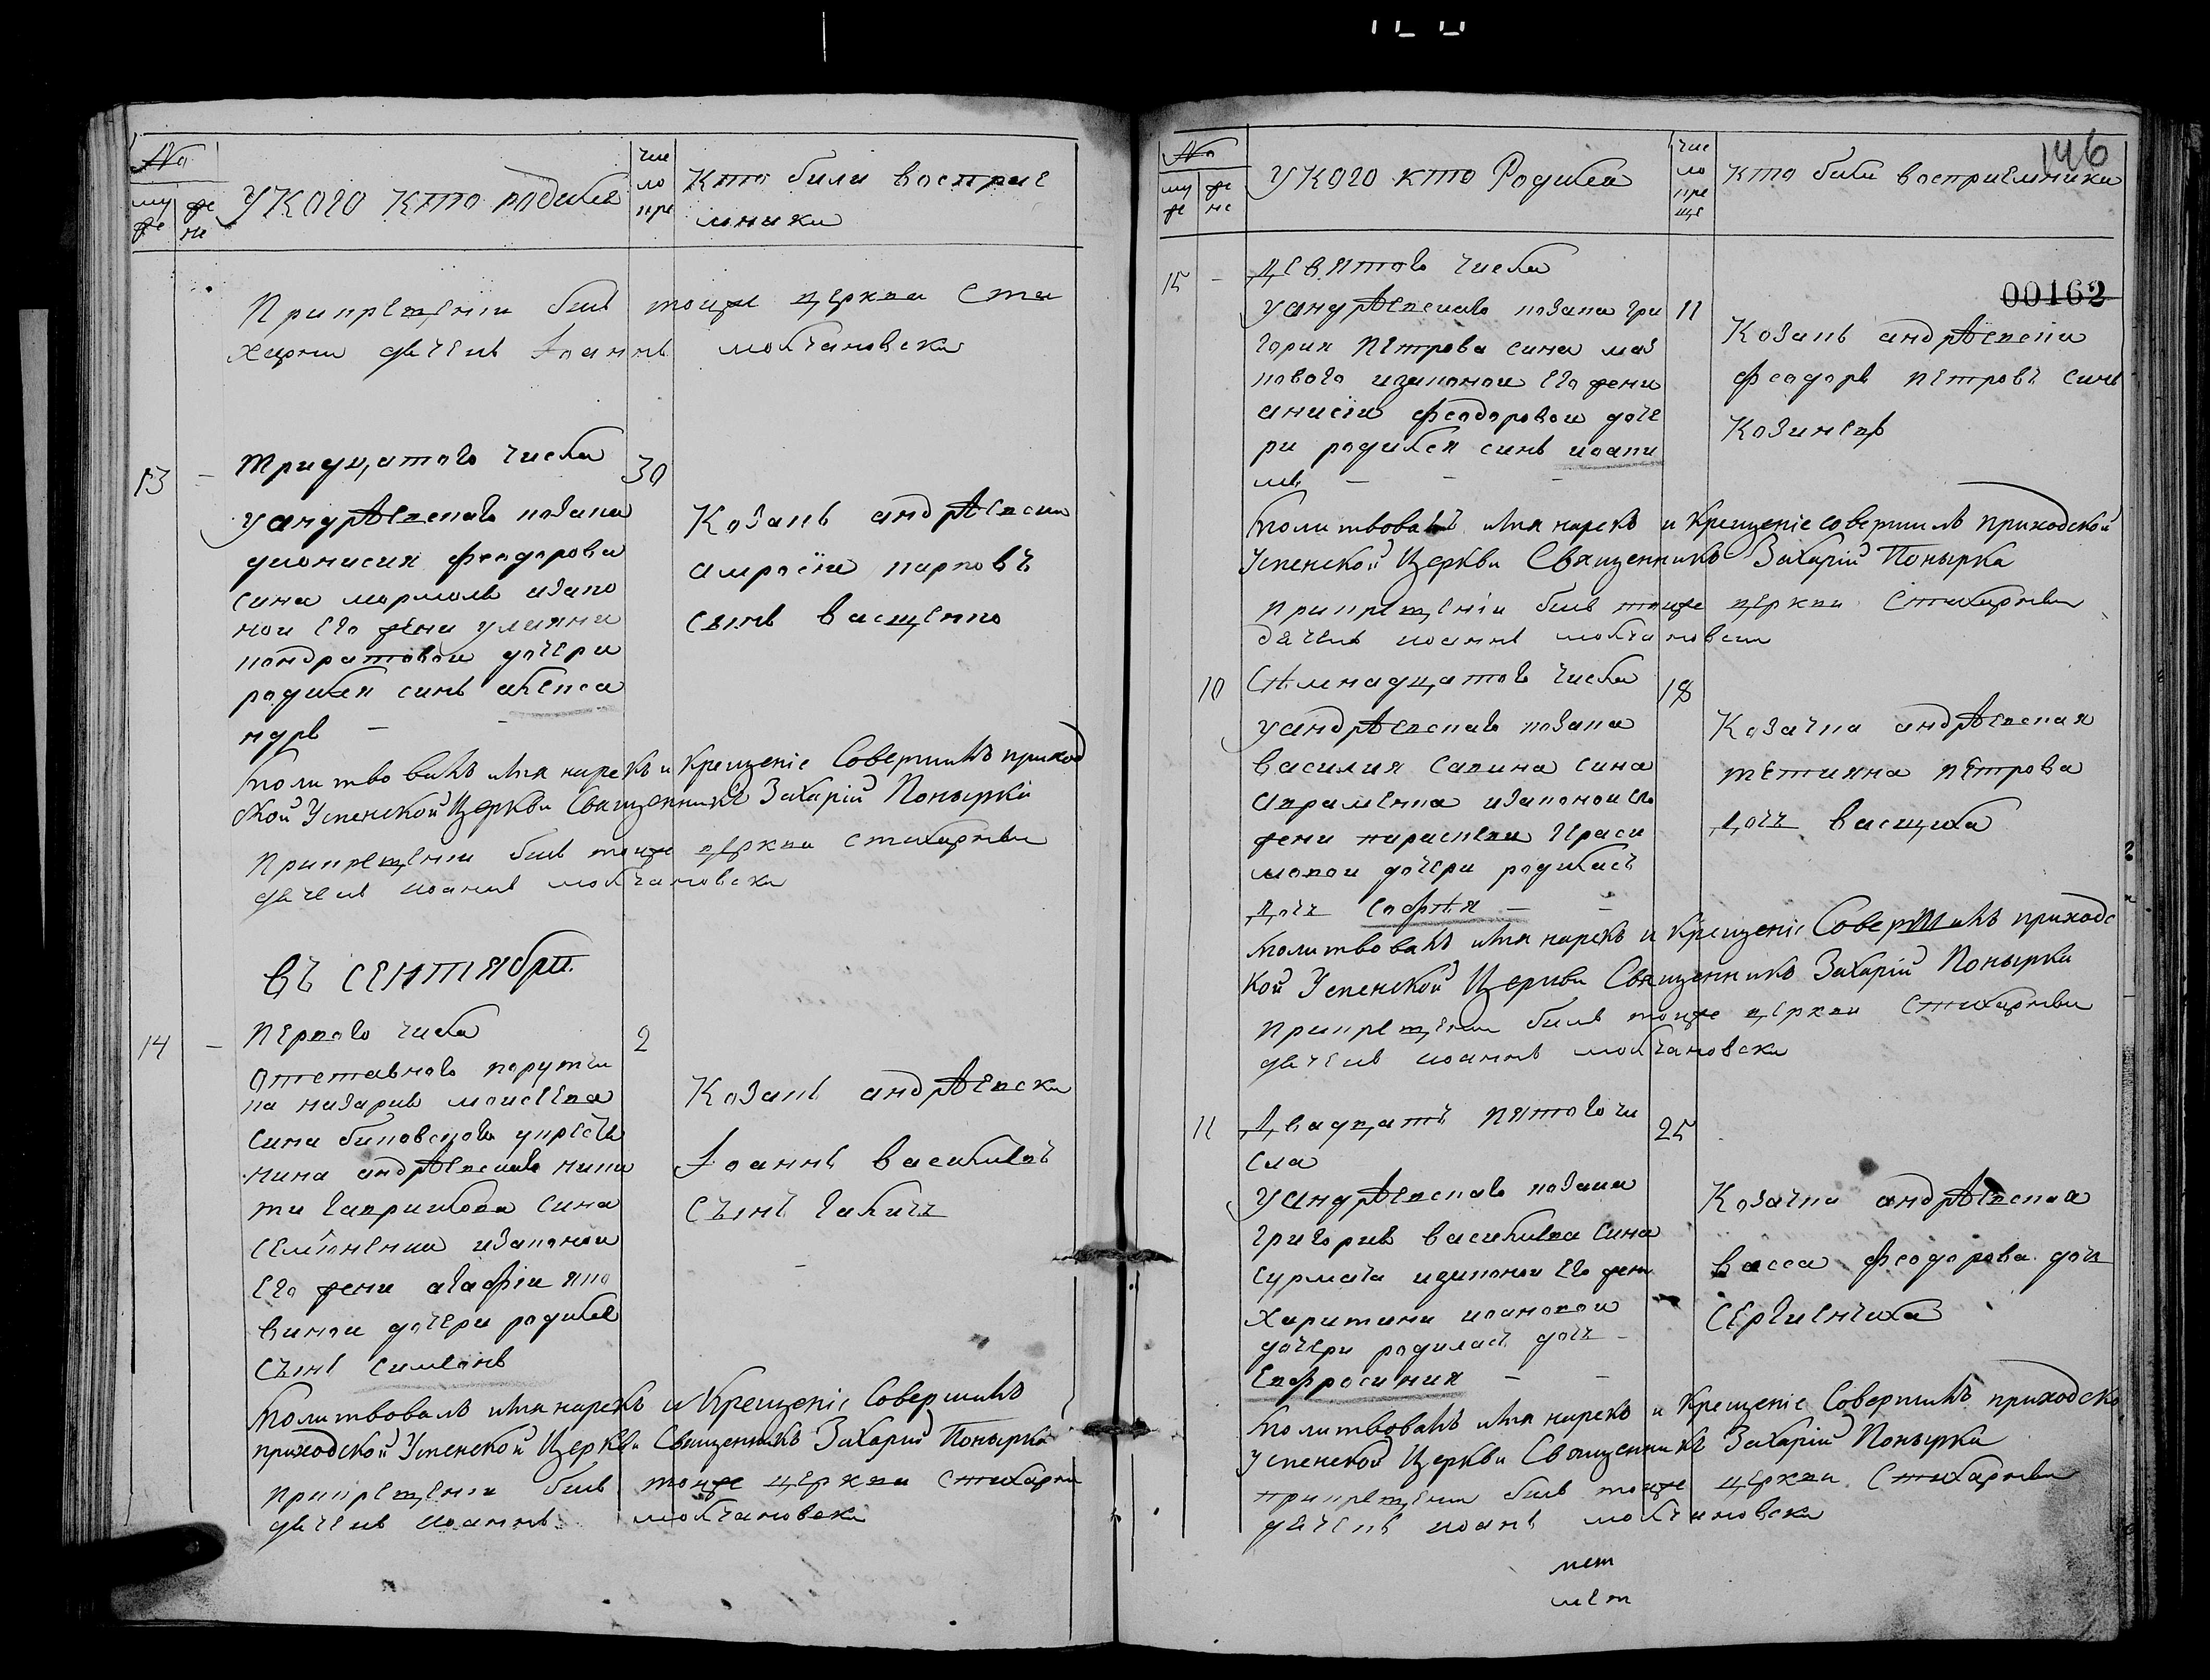 №
му же
же не
У кого кто родился
чис ло кре
Кто были восприе
мники
При крещеніи былъ тойже церкви сти
харни дячекъ Іоаннъ молчановски
13 - тридцатого числа 30
У андрѣевскаго козака
дионисия феодорова
сина мормоль изако
ной его жени улияни
кондратовой дочери
родился синъ алекса
ндръ - -
Козакъ андрѣевски
амросій карповъ
сынъ васщенко
Молитвовалъ имя нарекъ и крещеніе совершилъ приход
ской Успенской Церкви Священникъ Захарій Понырка
При крещеніи былъ тойже церкви стихарный
дячекъ иоаннъ молчановски
въ сентябрѣ
14 - первого числа 2
Отставного порутчи
ка назария моисеева
сина биковского
андрѣевскаго ники
ти гаврилова сина
семіоненка изаконой
его жени агафіи яко
виной дочери родился
сынъ симеонъ
Козакъ андрѣевски
Іоаннъ василиевъ
сынъ галичъ
Молитвовалъ имя нарекъ и крещеніе совершилъ
приходской Успенской Церкви Священникъ Захарій Понырка
При крещеніи былъ тойже церкви стихарни
дячекъ иоаннъ молчановски
146
№
му же
же не
У кого кто Родился
чис ло кре ще
кто были восприемники
00162
15 - Девятого числа
У андрѣевскаго козака гри 11
гория петрова сина маз
кового изаконой его жени
анисіи феодоровой доче
ри родился синъ иоаки
мъ - - -
Козакъ андрѣевскіи
феодоръ петровъ синъ
Козинецъ
Молитвовалъ имя нарекъ и крещеніе совершилъ приходской
Успенской Церкви Священникъ Захарій Понырка
при крещеніи былъ тойже церкви стихарный
дячекъ иоаннъ молчановски
10 Сѣмнадцатого числа 18
У андрѣевскаго козака
василия савина сина
авраменка изаконой его
жени параскеви гераси
мовой дочери родилась
дочь софѣя - -
Козачка андрѣевская
тетияна петрова
дочь васщиха
Молитвовалъ имя нарекъ и крещеніе совершилъ приходс
кой Успенской Церкви Священникъ Захарій Понырка
при крещеніи былъ тойже церкви стихарный
дячекъ иоаннъ молчановски
11 Двадцать пятого чи 25
сла
У андрѣевскаго козака
григория василиева сина
сурмача изаконой его жени
харитини иоановой
дочери родилась дочь -
евфросиния - -
Козачка андрѣевская
васса феодорова дочь
сергиенчиха
Молитвовалъ имя нарекъ и крещеніе совершилъ приходско
Успенской Церкви Священникъ Захарій Понырка
при крещеніи былъ тойже церкви стихарный
дячекъ иоанъ молчановски